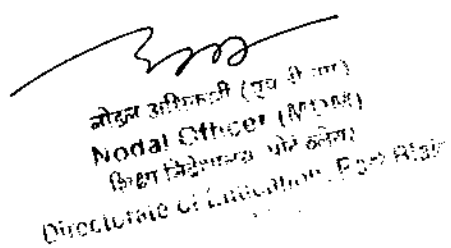 नोडल अधिकारी (एम डी एम)
Nodal Officer (MDM)
शिक्षा निदेशालय पोर्ट ब्लेयर
Directorate of Education, Port Blair